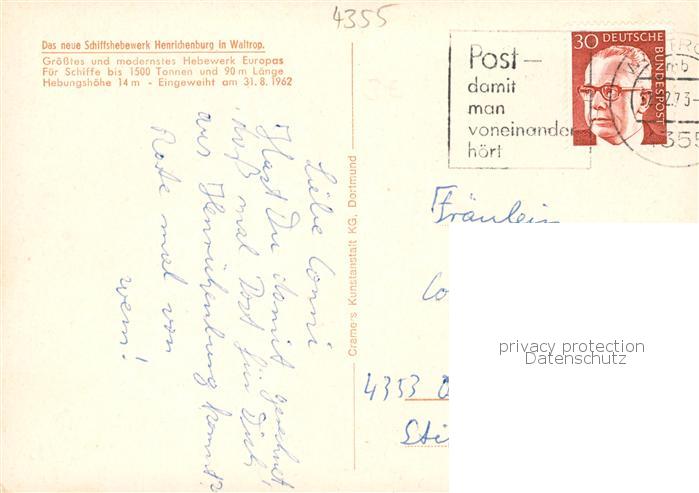 4355
Das neue Schiffshebewerk Henrichenburg in Waltrop.
Größtes und modernstes Hebewerk Europas
Für Schiffe bis 1500 Tonnen und 90 m Länge
Hebungshöhe 14 m - Eingeweiht am 31. 8. 1962
Liebe Conni
Hast Du damit gerechnet,
daß mal Post für Dich
aus Henrichenburg kommt?
Rate mal von
wem!
Cramers Kunstanstalt KG, Dortmund
Post-
damit
man
voneinander
hört
30 DEUTSCHE
BUNDESPOST
355
Fräulein
Co
4353
privacy protection
Datenschutz